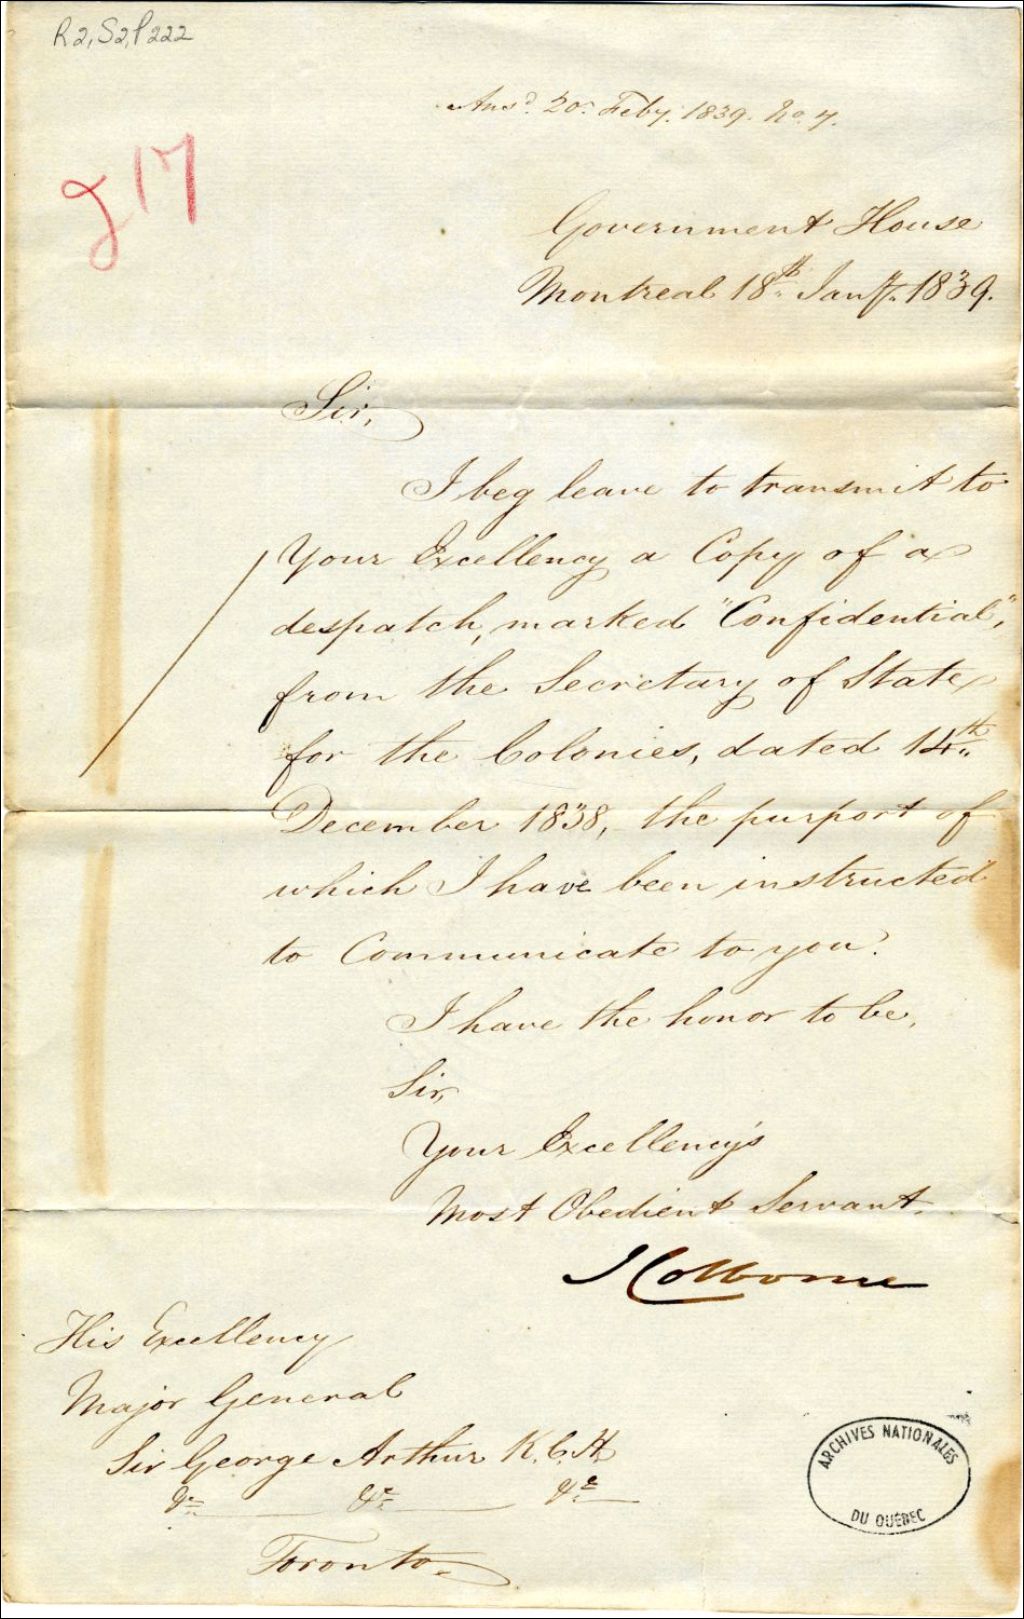 R2,S2,P222
Ansd. 20. Feby. 1839. No. 7.
g 17
Government House
Montreal 18th Jany. 1839.
Sir,
I beg leave to transmit to
Your Excellency a Copy of a
despatch, marked "Confidential",
from the Secretary of State
for the Colonies, dated 14th
December 1838, the purport of
which I have been instructed
to Communicate to you.
I have the honor to be,
Sir,
Your Excellency's
Most Obedient Servant.
J Colborne
His Excellency
Major General
Sir George Arthur K.C.H.
&c &c &c
Toronto.
ARCHIVES NATIONALES
DU QUÉBEC